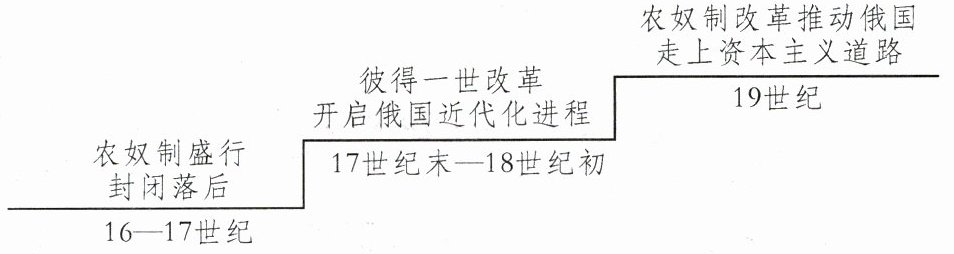 农奴制盛行
封闭落后
16—17世纪
彼得一世改革
开启俄国近代化进程
17世纪末—18世纪初
农奴制改革推动俄国
走上资本主义道路
19世纪